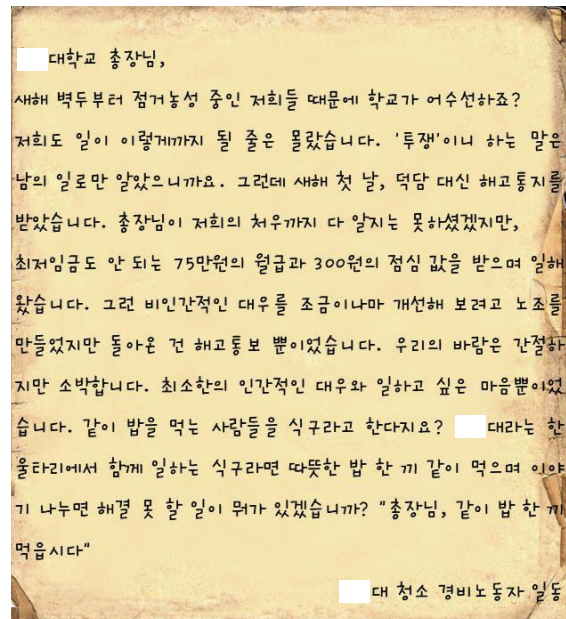 대학교 총장님,
새해 벽두부터 점거농성 중인 저희들 때문에 학교가 어수선하죠?
저희도 일이 이렇게까지 될 줄은 몰랐습니다. '투쟁'이니 하는 말은
남의 일로만 알았으니까요. 그런데 새해 첫 날, 덕담 대신 해고통지를
받았습니다. 총장님이 저희의 처우까지 다 알지는 못하셨겠지만,
최저임금도 안 되는 75만원의 월급과 300원의 점심 값을 받으며 일해
왔습니다. 그런 비인간적인 대우를 조금이나마 개선해 보려고 노조를
만들었지만 돌아온 건 해고통보 뿐이었습니다. 우리의 바람은 간절하
지만 소박합니다. 최소한의 인간적인 대우와 일하고 싶은 마음뿐이었
습니다. 같이 밥을 먹는 사람들을 식구라고 한다지요? 대라는 한
울타리에서 함께 일하는 식구라면 따뜻한 밥 한 끼 같이 먹으며 이야
기 나누면 해결 못 할 일이 뭐가 있겠습니까? "총장님, 같이 밥 한 끼
먹읍시다"
대 청소 경비노동자 일동